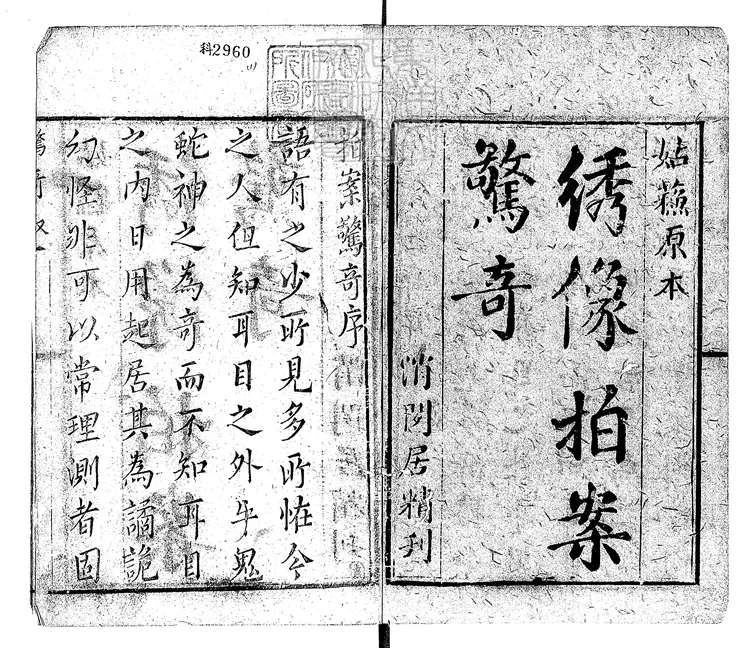 姑蘓原本
綉像拍案
驚奇
消閑居精刋
科2960
(1)
拍案驚奇序
語有之少所見多所恠今
之人但知耳目之外牛鬼
蛇神之為奇而不知耳目
之内日用起居其為譎詭
幻怪非可以常理測者固